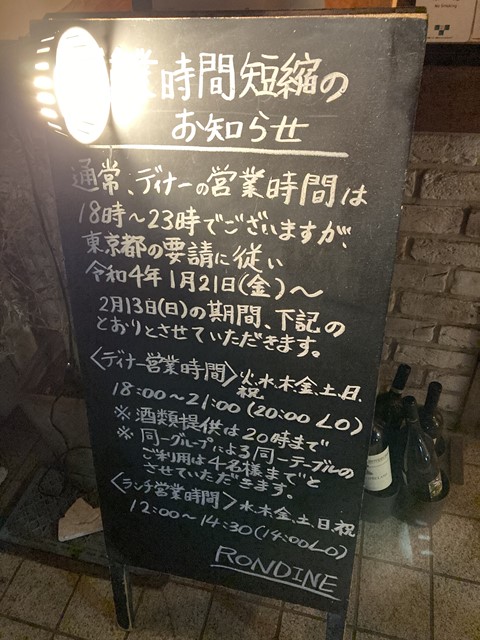 業時間短縮の
お知らせ
通常、ディナーの営業時間は
18時～23時でございますが、
東京都の要請に従い
令和4年1月21日(金)～
2月13日(日)の期間、下記の
とおりとさせていただきます。
〈ディナー営業時間〉火、水、木、金、土、日、祝
18:00～21:00(20:00 LO)
※ 酒類提供は20時まで
※ 同一グループによる同一テーブルの
ご利用は4名様までと
させていただきます。
〈ランチ営業時間〉水、木、金、土、日、祝
12:00～14:30(14:00LO)
RONDINE